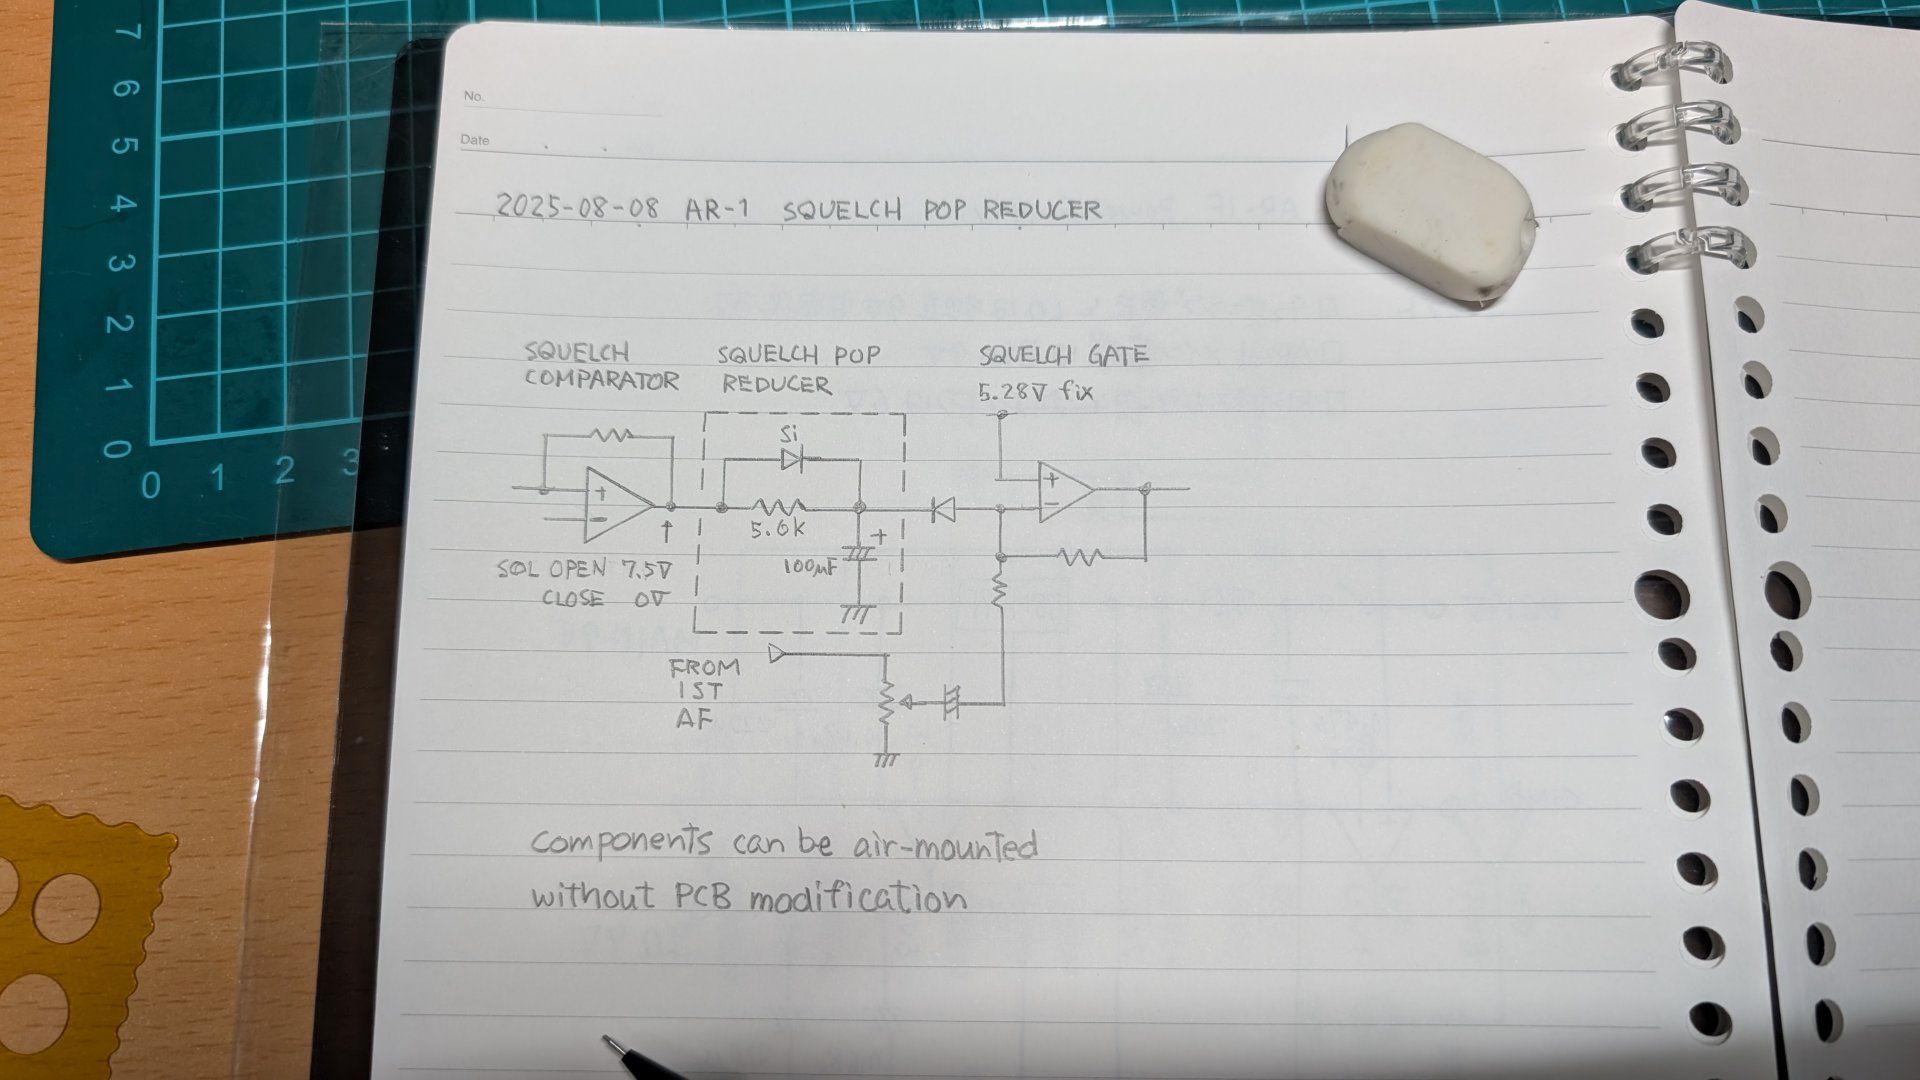 7
6
5
4
3
2
1
0
0 1 2 3
No.
Date
2025-08-08 AR-1 SQUELCH POP REDUCER
SQUELCH COMPARATOR
SQUELCH POP REDUCER
SQUELCH GATE
5.28V fix
Si
+
-
5.6k
+
100μF
+
-
↑
SQL OPEN 7.5V
CLOSE 0V
FROM
1ST
AF
Components can be air-mounted
without PCB modification